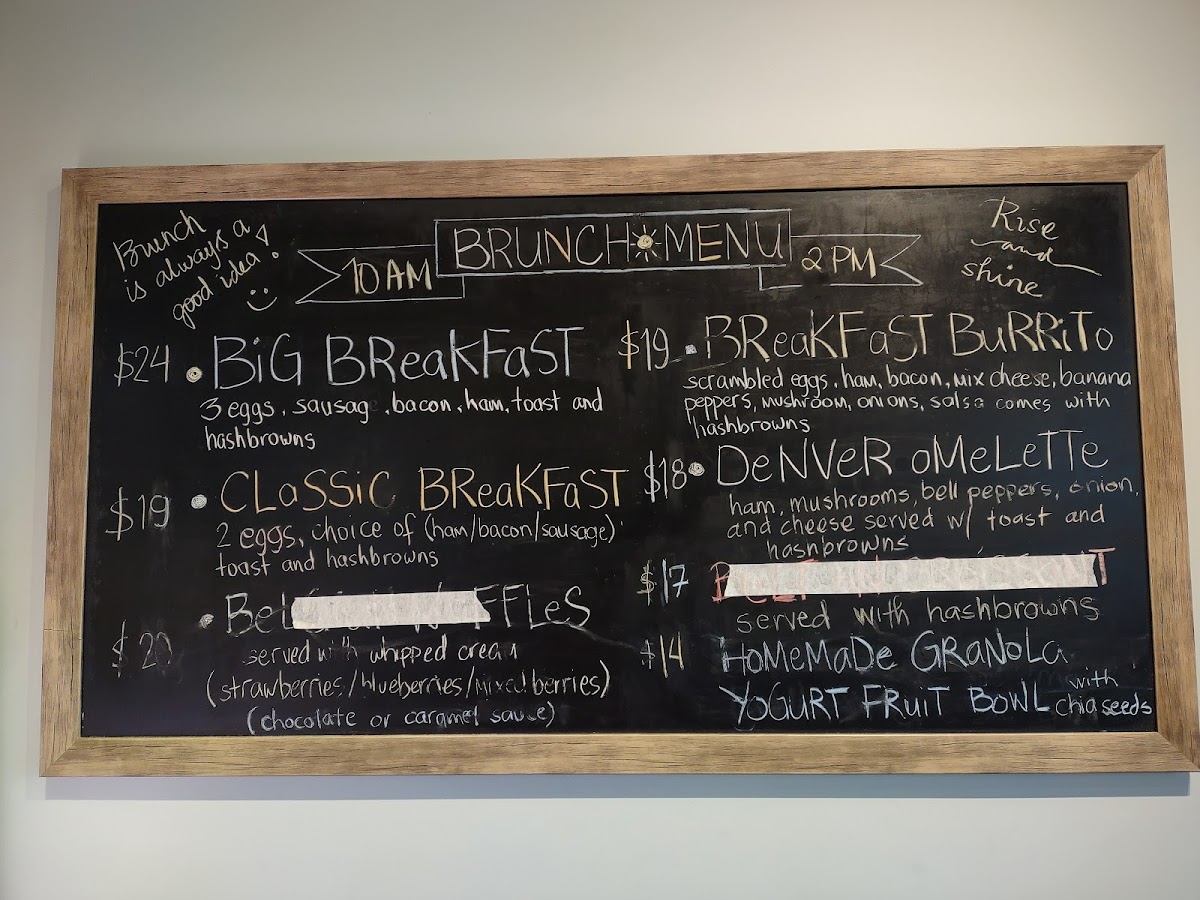 Brunch
is always a
good idea!
10 AM
BRUNCH MENU
2 PM
Rise
and
shine
$24 • BiG BReaKFaST
3 eggs, sausag, bacon, ham, toast and
hashbrowns
$19 • CLaSSiC BReaKFaST
2 eggs, choice of (ham/bacon/sausage)
toast and hashbrowns
$20 • BeLGian WaFFLeS
served with whipped cream
(strawberries/blueberries/mixed berries)
(chocolate or caramel sauce)
$19 • BReaKFaST BuRRiTo
scrambled eggs, ham, bacon, mix cheese, banana
peppers, mushroom, onions, salsa comes with
hashbrowns
$18 • DeNVeR oMeLeTTe
ham, mushrooms, bell peppers, onion,
and cheese served w/ toast and
hashbrowns
$17
served with hashbrowns
$14 HoMeMaDe GRaNoLa
YoGURT FRuiT BoWL with
chia seeds